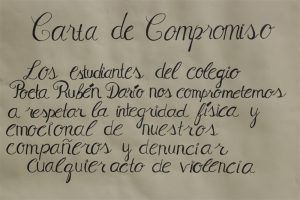 Carta de Compromiso
Los estudiantes del colegio
Poeta Rubén Darío nos comprometemos
a respetar la integridad física y
emocional de nuestros
compañeros y denunciar
cualquier acto de violencia